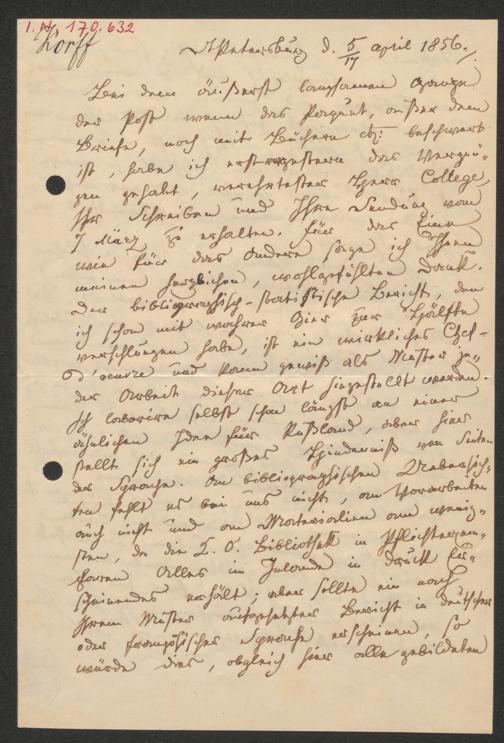 I. N. 170.632
Korff
St Petersburg d. 5/17 april 1856.
Bei dem äußerst langsamen Gange
der Post wenn das Paquet, außer dem
Briefe, noch mit Büchern etc: beschwert
ist, habe ich erst vorgestern das Vergnü-
gen gehabt verehrtester Herr College,
Ihr Schreiben und Ihre Sendung vom
7 März zu erhalten. Für das Eine
wie für das Andere sage ich Ihnen
meinen herzlichen, wohlgefühlten Dank.
Der bibliographisch-statistische Bericht, den
ich schon mit wahrer Gier zur Hälfte
verschlungen habe, ist ein wirkliches Chef-
d'oeuvre und kann gewiß als Muster je-
der Arbeit dieser Art hingestellt werden.
Ich laborire selbst schon längst an einer
ähnlichen Idee für Rußland, aber hier
stellt sich ein großes Hinderniß von Seiten
der Sprache. An bibliographischen Uebersich-
ten fehlt es bei uns nicht, an Vorarbeiten
auch nicht und an Materialien am wenig-
sten, da die K. O. Bibliothek in Pflichtexem-
plaren Alles im Inlande in Druck Er-
scheinendes erhält; aber sollte ein nach
Ihrem Muster aufgesetzter Bericht in deutscher
oder französischer Sprache erscheinen, so
würde dies, obgleich hier alle gebildeten